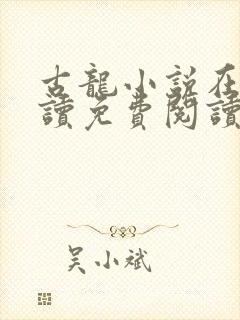 古龍小說在
讀免費閱讀
吴小斌